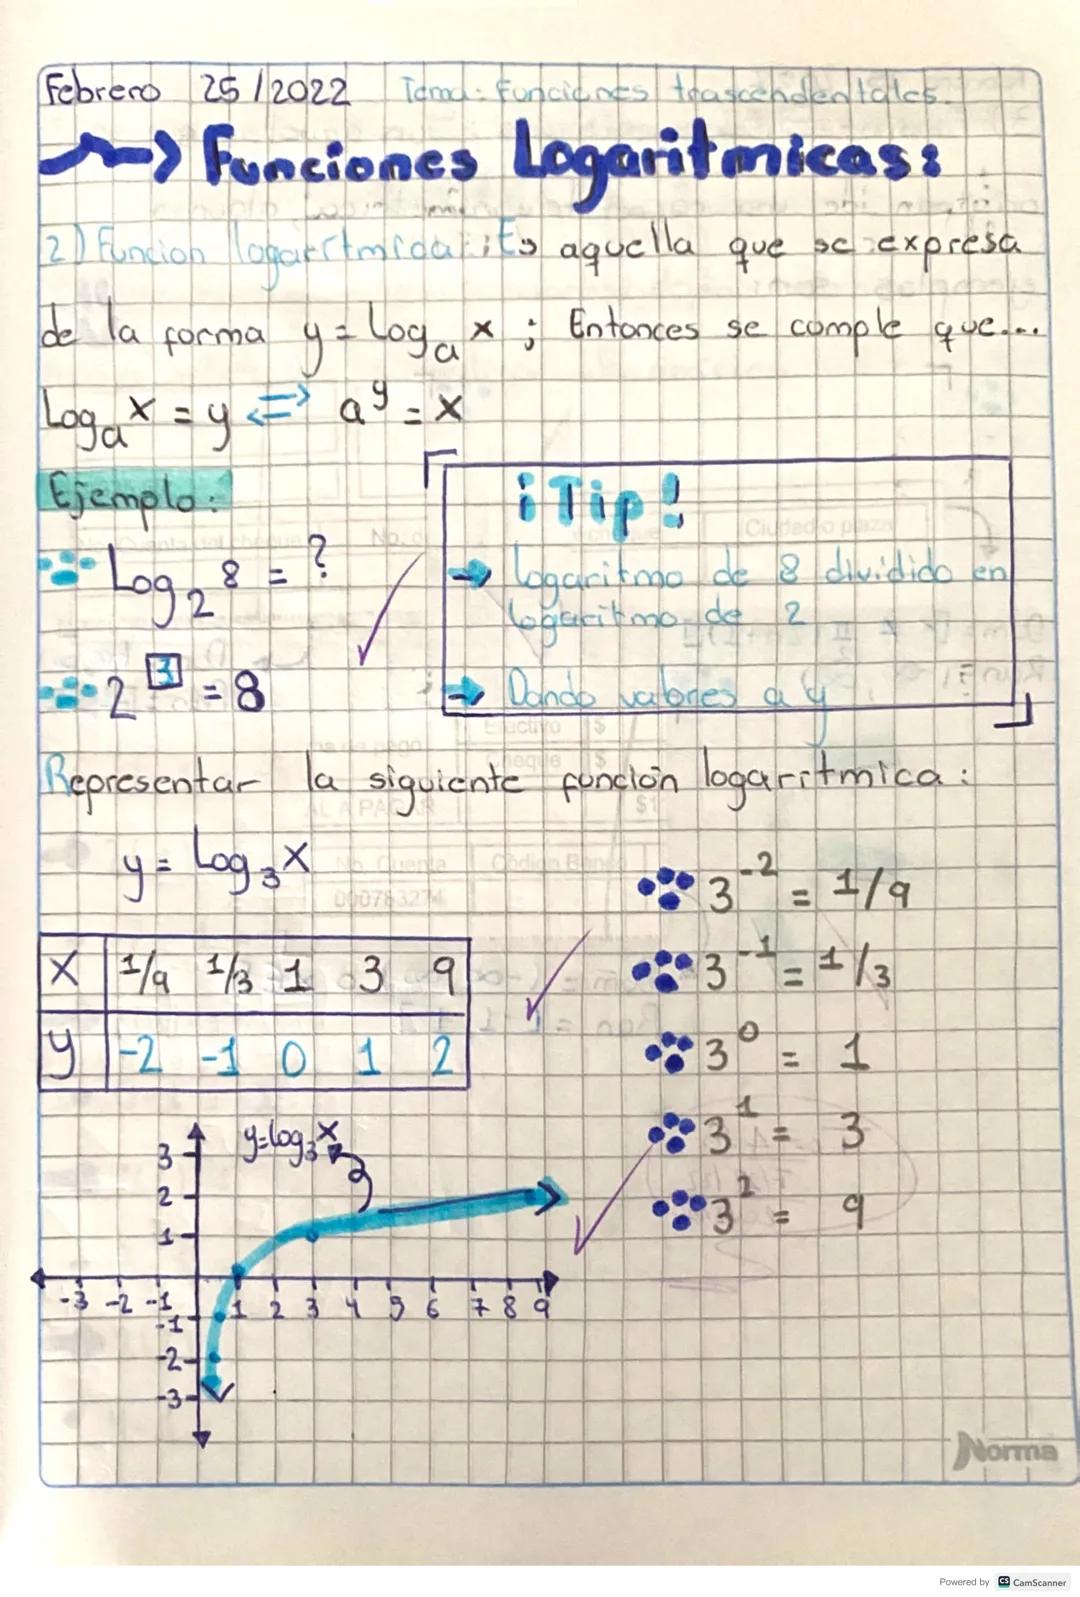 Febrero 25/2022 Tema: Funciones trascendentales.
Funciones Logaritmicas:
2) Funcion logaritmica: Es aquella que se expresa
de la forma y = Log_a x ; Entonces se comple que...
Log_a x = y ⇔ a^y = x
Ejemplo:
Log_2 8 = ?
2^3 = 8
¡Tip!
→ Logaritmo de 8 dividido en
logaritmo de 2
→ Dando valores a y
Representar la siguiente función logaritmica:
y = Log_3 x
X 1/9 1/3 1 3 9
y -2 -1 0 1 2
3^-2 = 1/9
3^-1 = 1/3
3^0 = 1
3^1 = 3
3^2 = 9
y=log_3 x
3
2
1
-3 -2 -1 1 2 3 4 5 6 7 8 9
-1
-2
-3
Norma
Powered by CS CamScanner